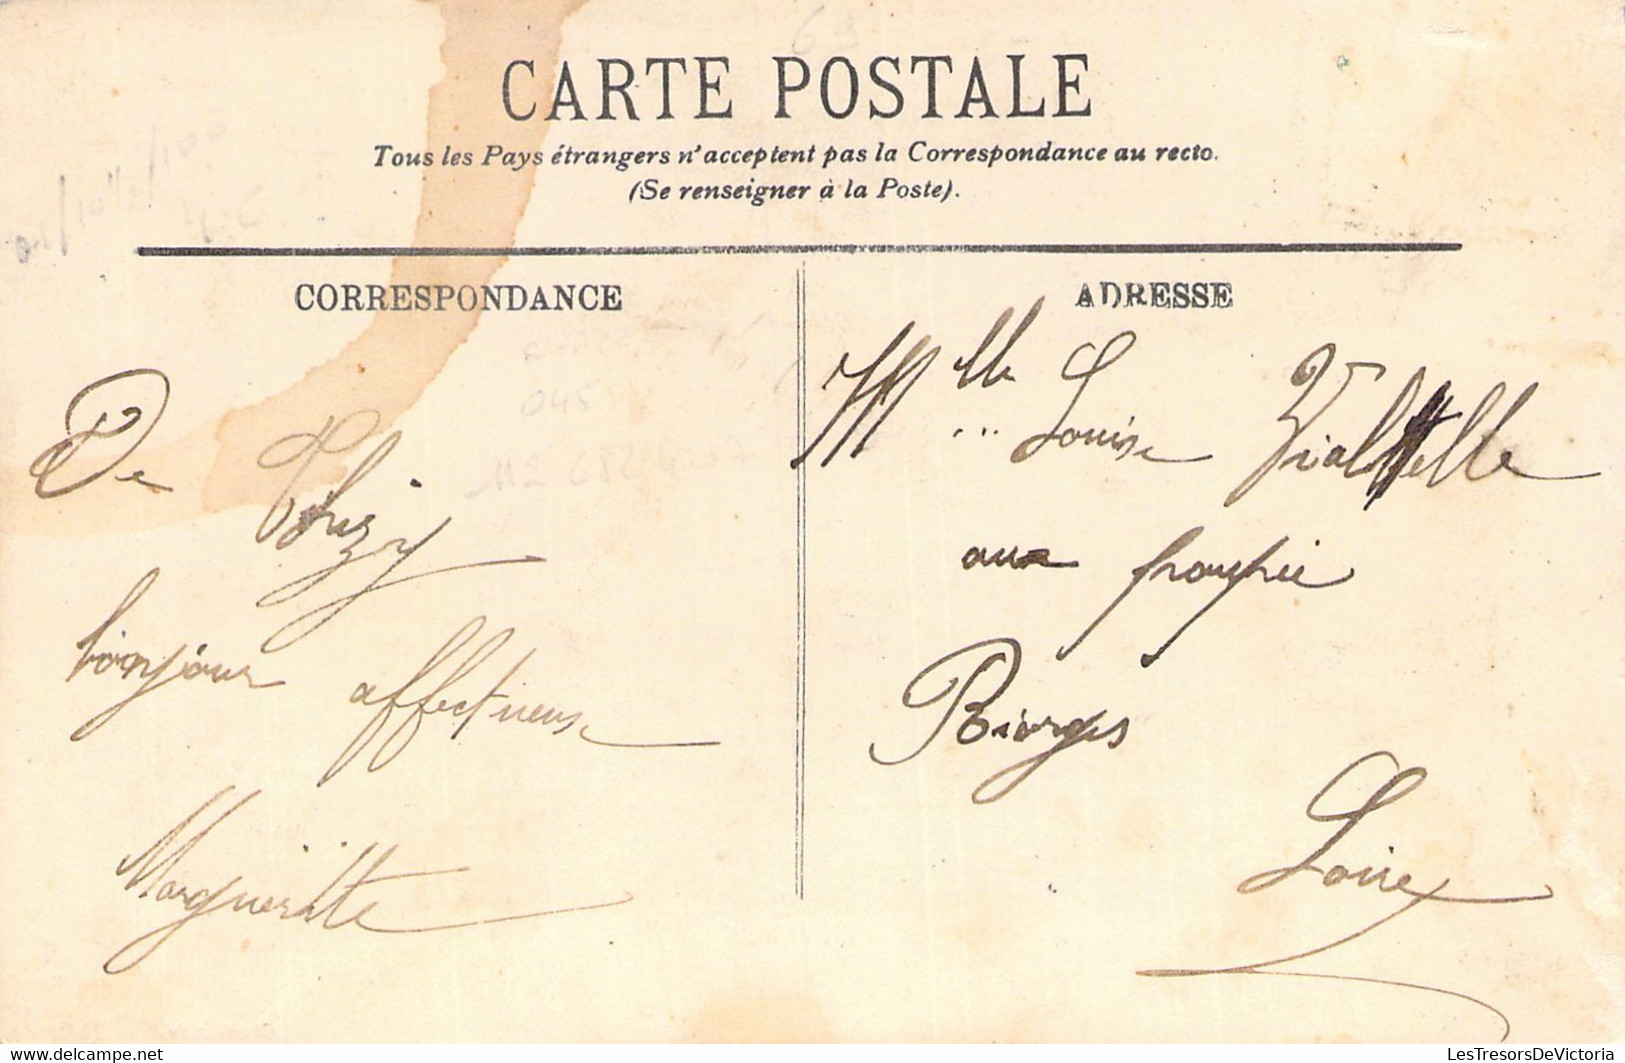 CARTE POSTALE
Tous les Pays étrangers n'acceptent pas la Correspondance au recto.
(Se renseigner à la Poste).
CORRESPONDANCE
De Thizy
bonjour affectueux
Marguerite
ADRESSE
Mlle Louise Vialtelle
aux
Biorges
Loire
045
LesTresorsDeVictoria